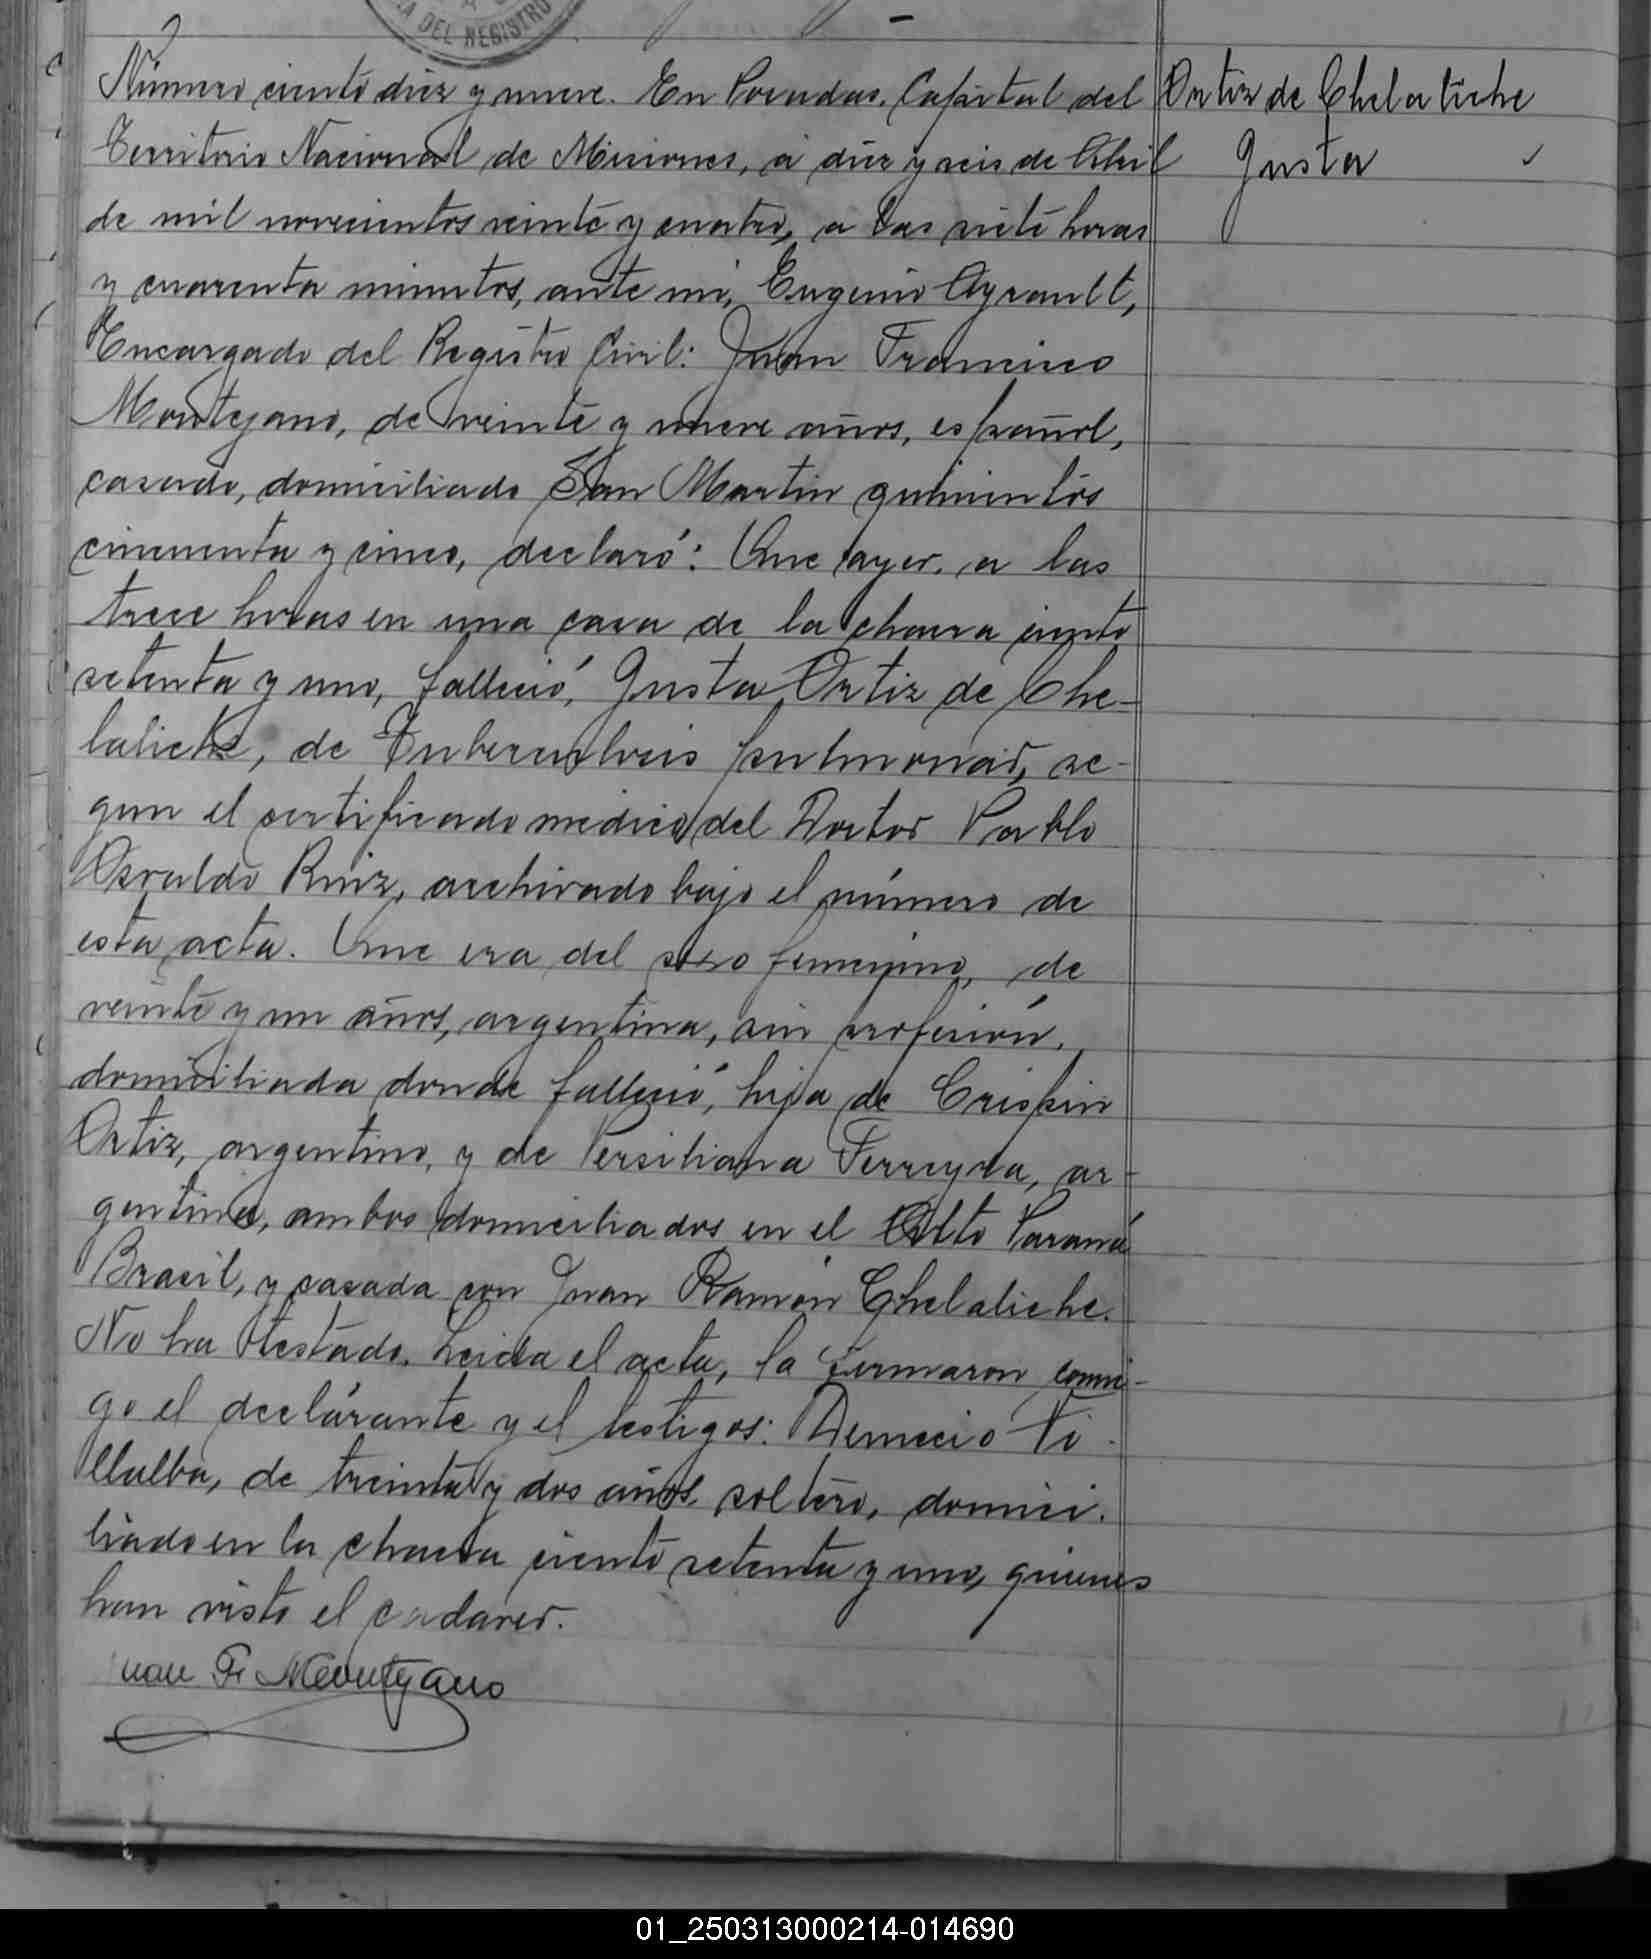 DEL REGISTRO
Número ciento diez y nueve. En Posadas, Capital del
Ortiz de Chelaliche
Territorio Nacional de Misiones, a diez y seis de Abril
Gusta
de mil novecientos veinte y cuatro, a las siete horas
y cuarenta minutos, ante mi, Eugenio Ayrault,
Encargado del Registro Civil: Juan Francisco
Montejano, de veinte y nueve años, español,
casado, domiciliado San Martin quinientos
cincuenta y cinco, declaró: Que ayer, a las
trece horas en una casa de la chacra ciento
setenta y uno, falleció, Gusta Ortiz de Che-
laliche, de Tuberculosis pulmonar, se-
gun el certificado medico del Doctor Pablo
Osvaldo Ruiz, archivado bajo el número de
esta acta. Que era del sexo femenino, de
veinte y un años, argentina, sin profesión,
domiciliada donde falleció, hija de Crispin
Ortiz, argentino, y de Versiliana Ferreyra, ar-
gentina, ambos domiciliados en el Alto Paraná
Brasil, y casada con Juan Ramón Chelaliche.
No ha testado. Leida el acta, la firmaron conmi-
go el declarante y el testigos: Demecio Vi-
llalba, de treinta y dos años, soltero, domici-
liado en la chacra ciento setenta y uno, quienes
han visto el cadaver.
Juan F. Montejano
01_250313000214-014690